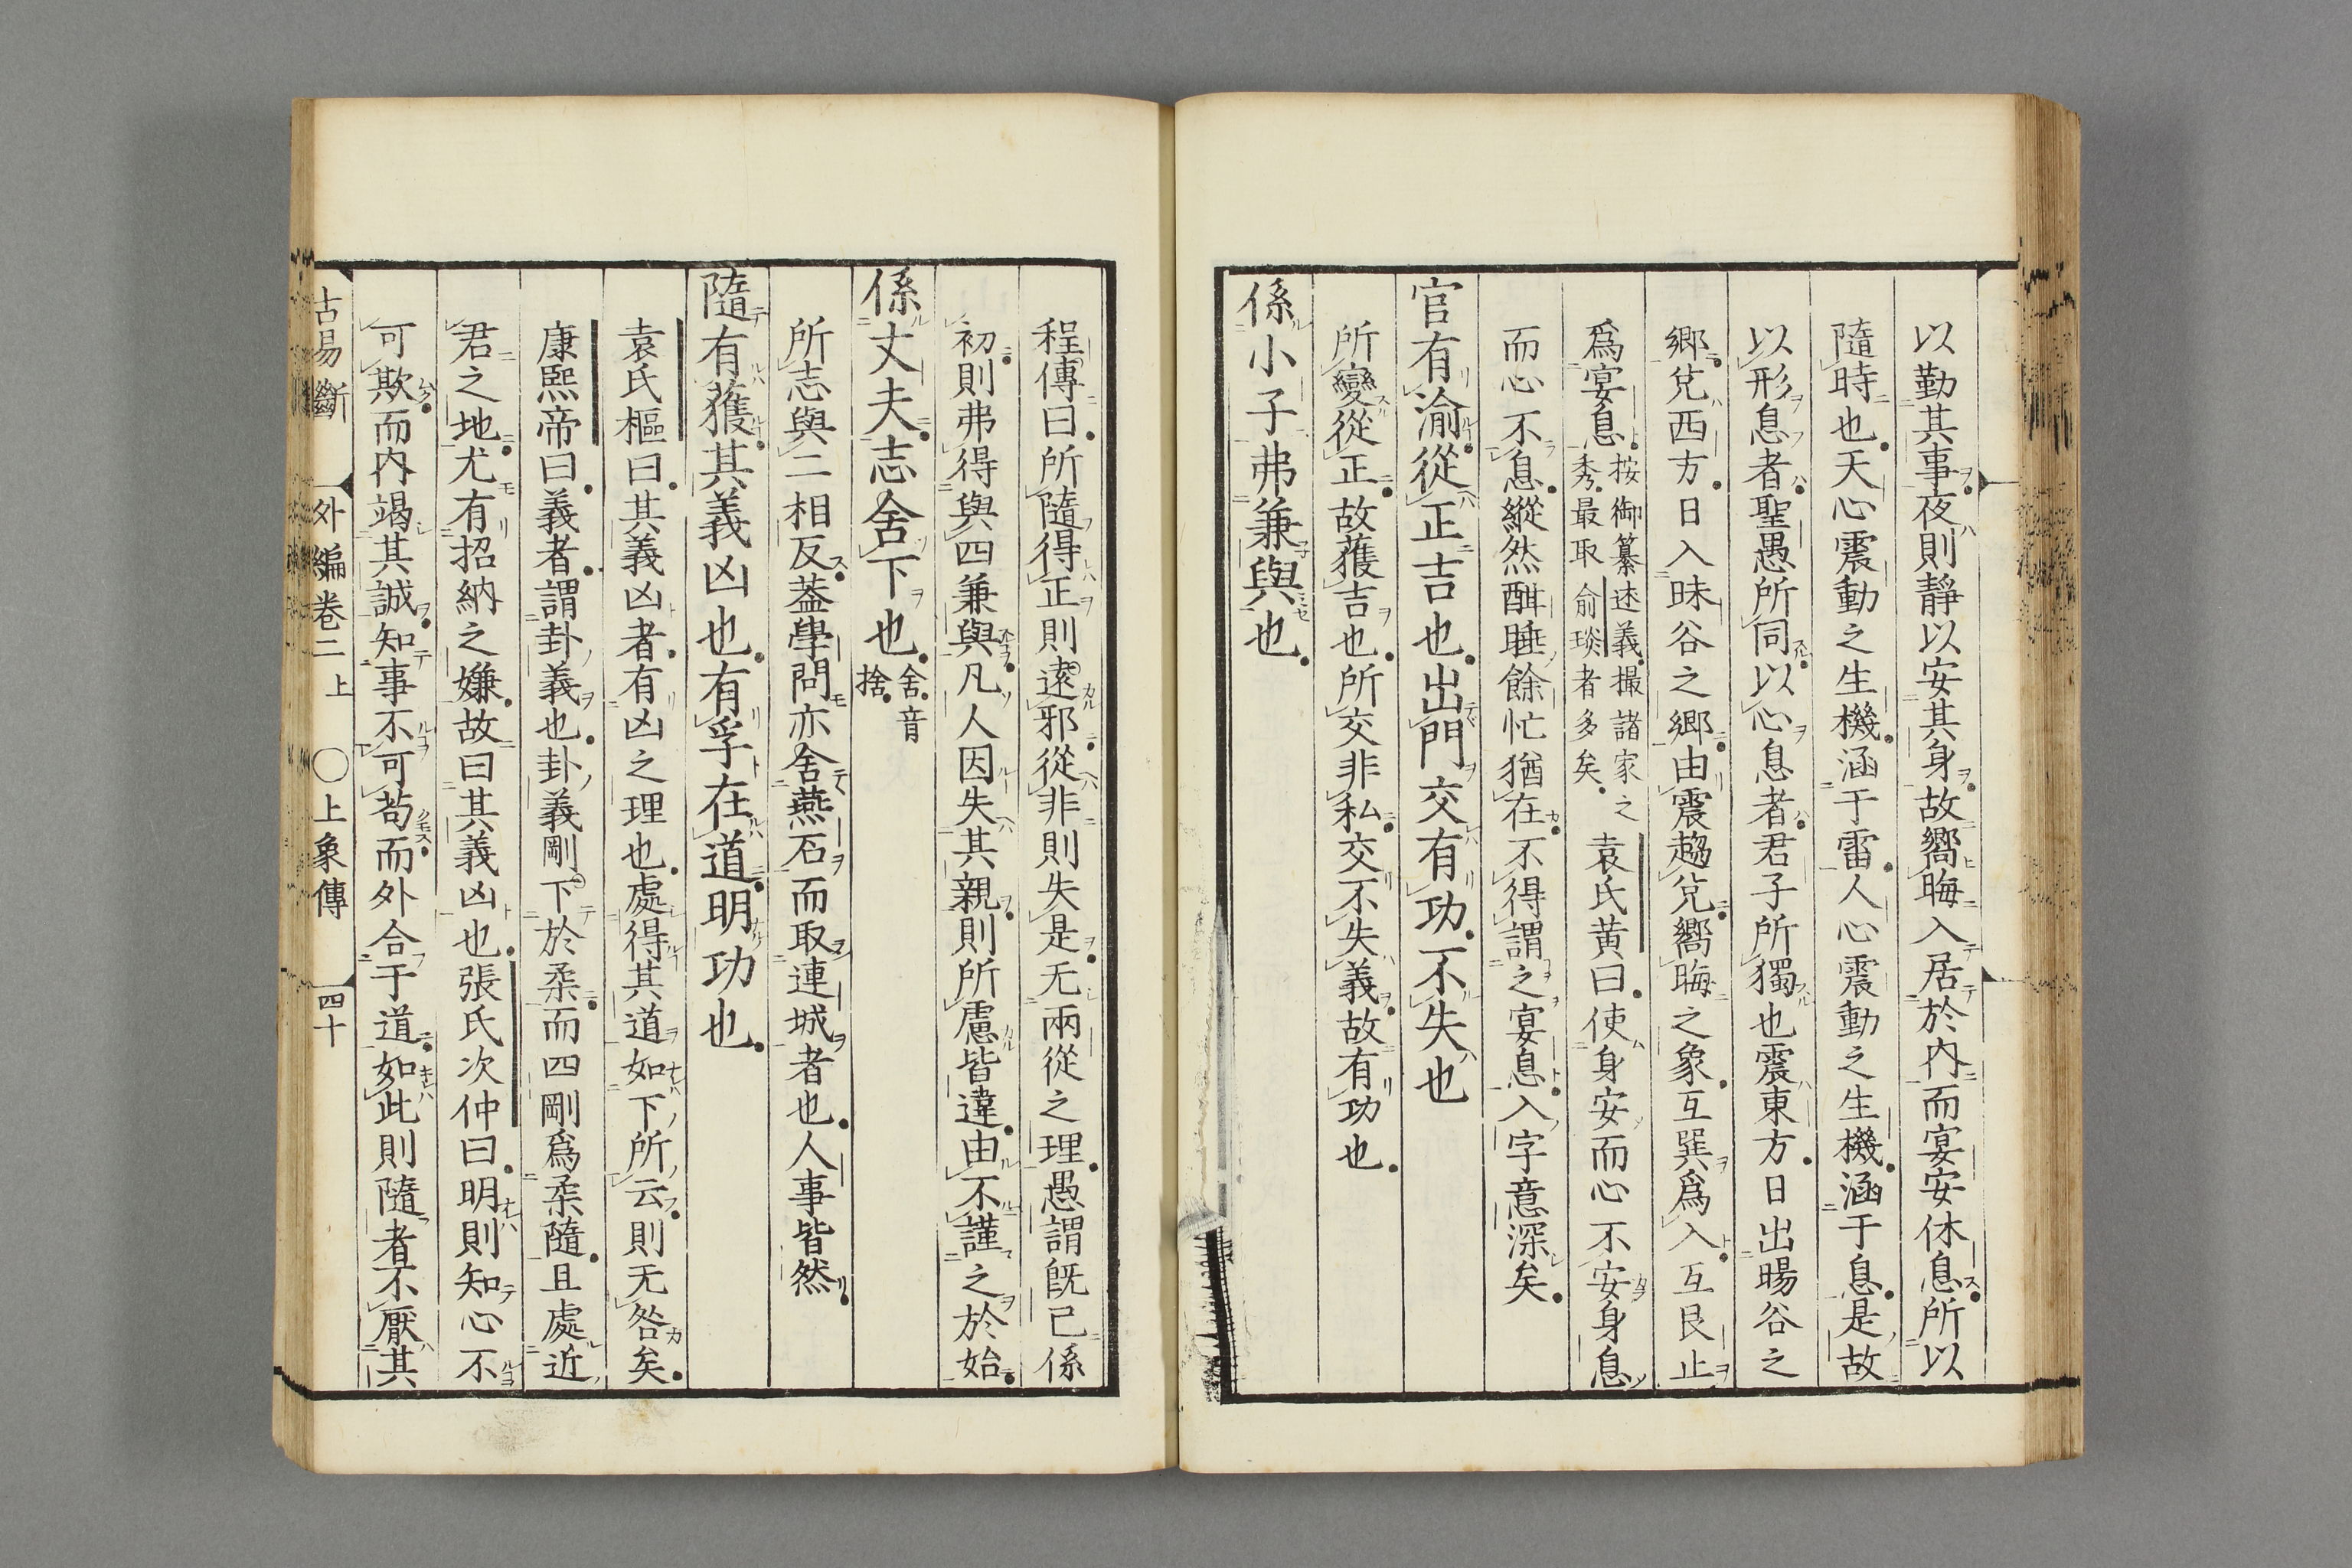 以勤其事夜則靜以安其身故嚮晦入居於内而宴安休息所以
隨時也天心震動之生機涵于雷人心震動之生機涵于息是故
以形息者聖愚所同以心息者君子所獨也震東方日出暘谷之
鄉兌西方日入昧谷之鄉由震趨兌嚮晦之象互巽爲入互艮止
爲宴息按御纂述義撮諸家之秀最取俞琰者多矣袁氏黄曰使身安而心不安身息
而心不息縱然酣睡餘忙猶在不得謂之宴息入字意深矣
官有渝從正吉也出門交有功不失也
所變從正故獲吉也所交非私交不失義故有功也
係小子弗兼與也
程傳曰所隨得正則遠邪從非則失是无兩從之理愚謂既已係
初則弗得與四兼與凡人因失其親則所慮皆違由不謹之於始
係丈夫志舍下也舍音捨
所志與二相反蓋學問亦舍燕石而取連城者也人事皆然
隨有獲其義凶也有孚在道明功也
袁氏樞曰其義凶者有凶之理也處得其道如下所云則无咎矣
康熙帝曰義者謂卦義也卦義剛下於柔而四剛爲柔隨且處近
君之地尤有招納之嫌故曰其義凶也張氏次仲曰明則知心不
可欺而内竭其誠知事不可苟而外合于道如此則隨者不厭其
古易斷 外編卷二上 〇上象傳 四十